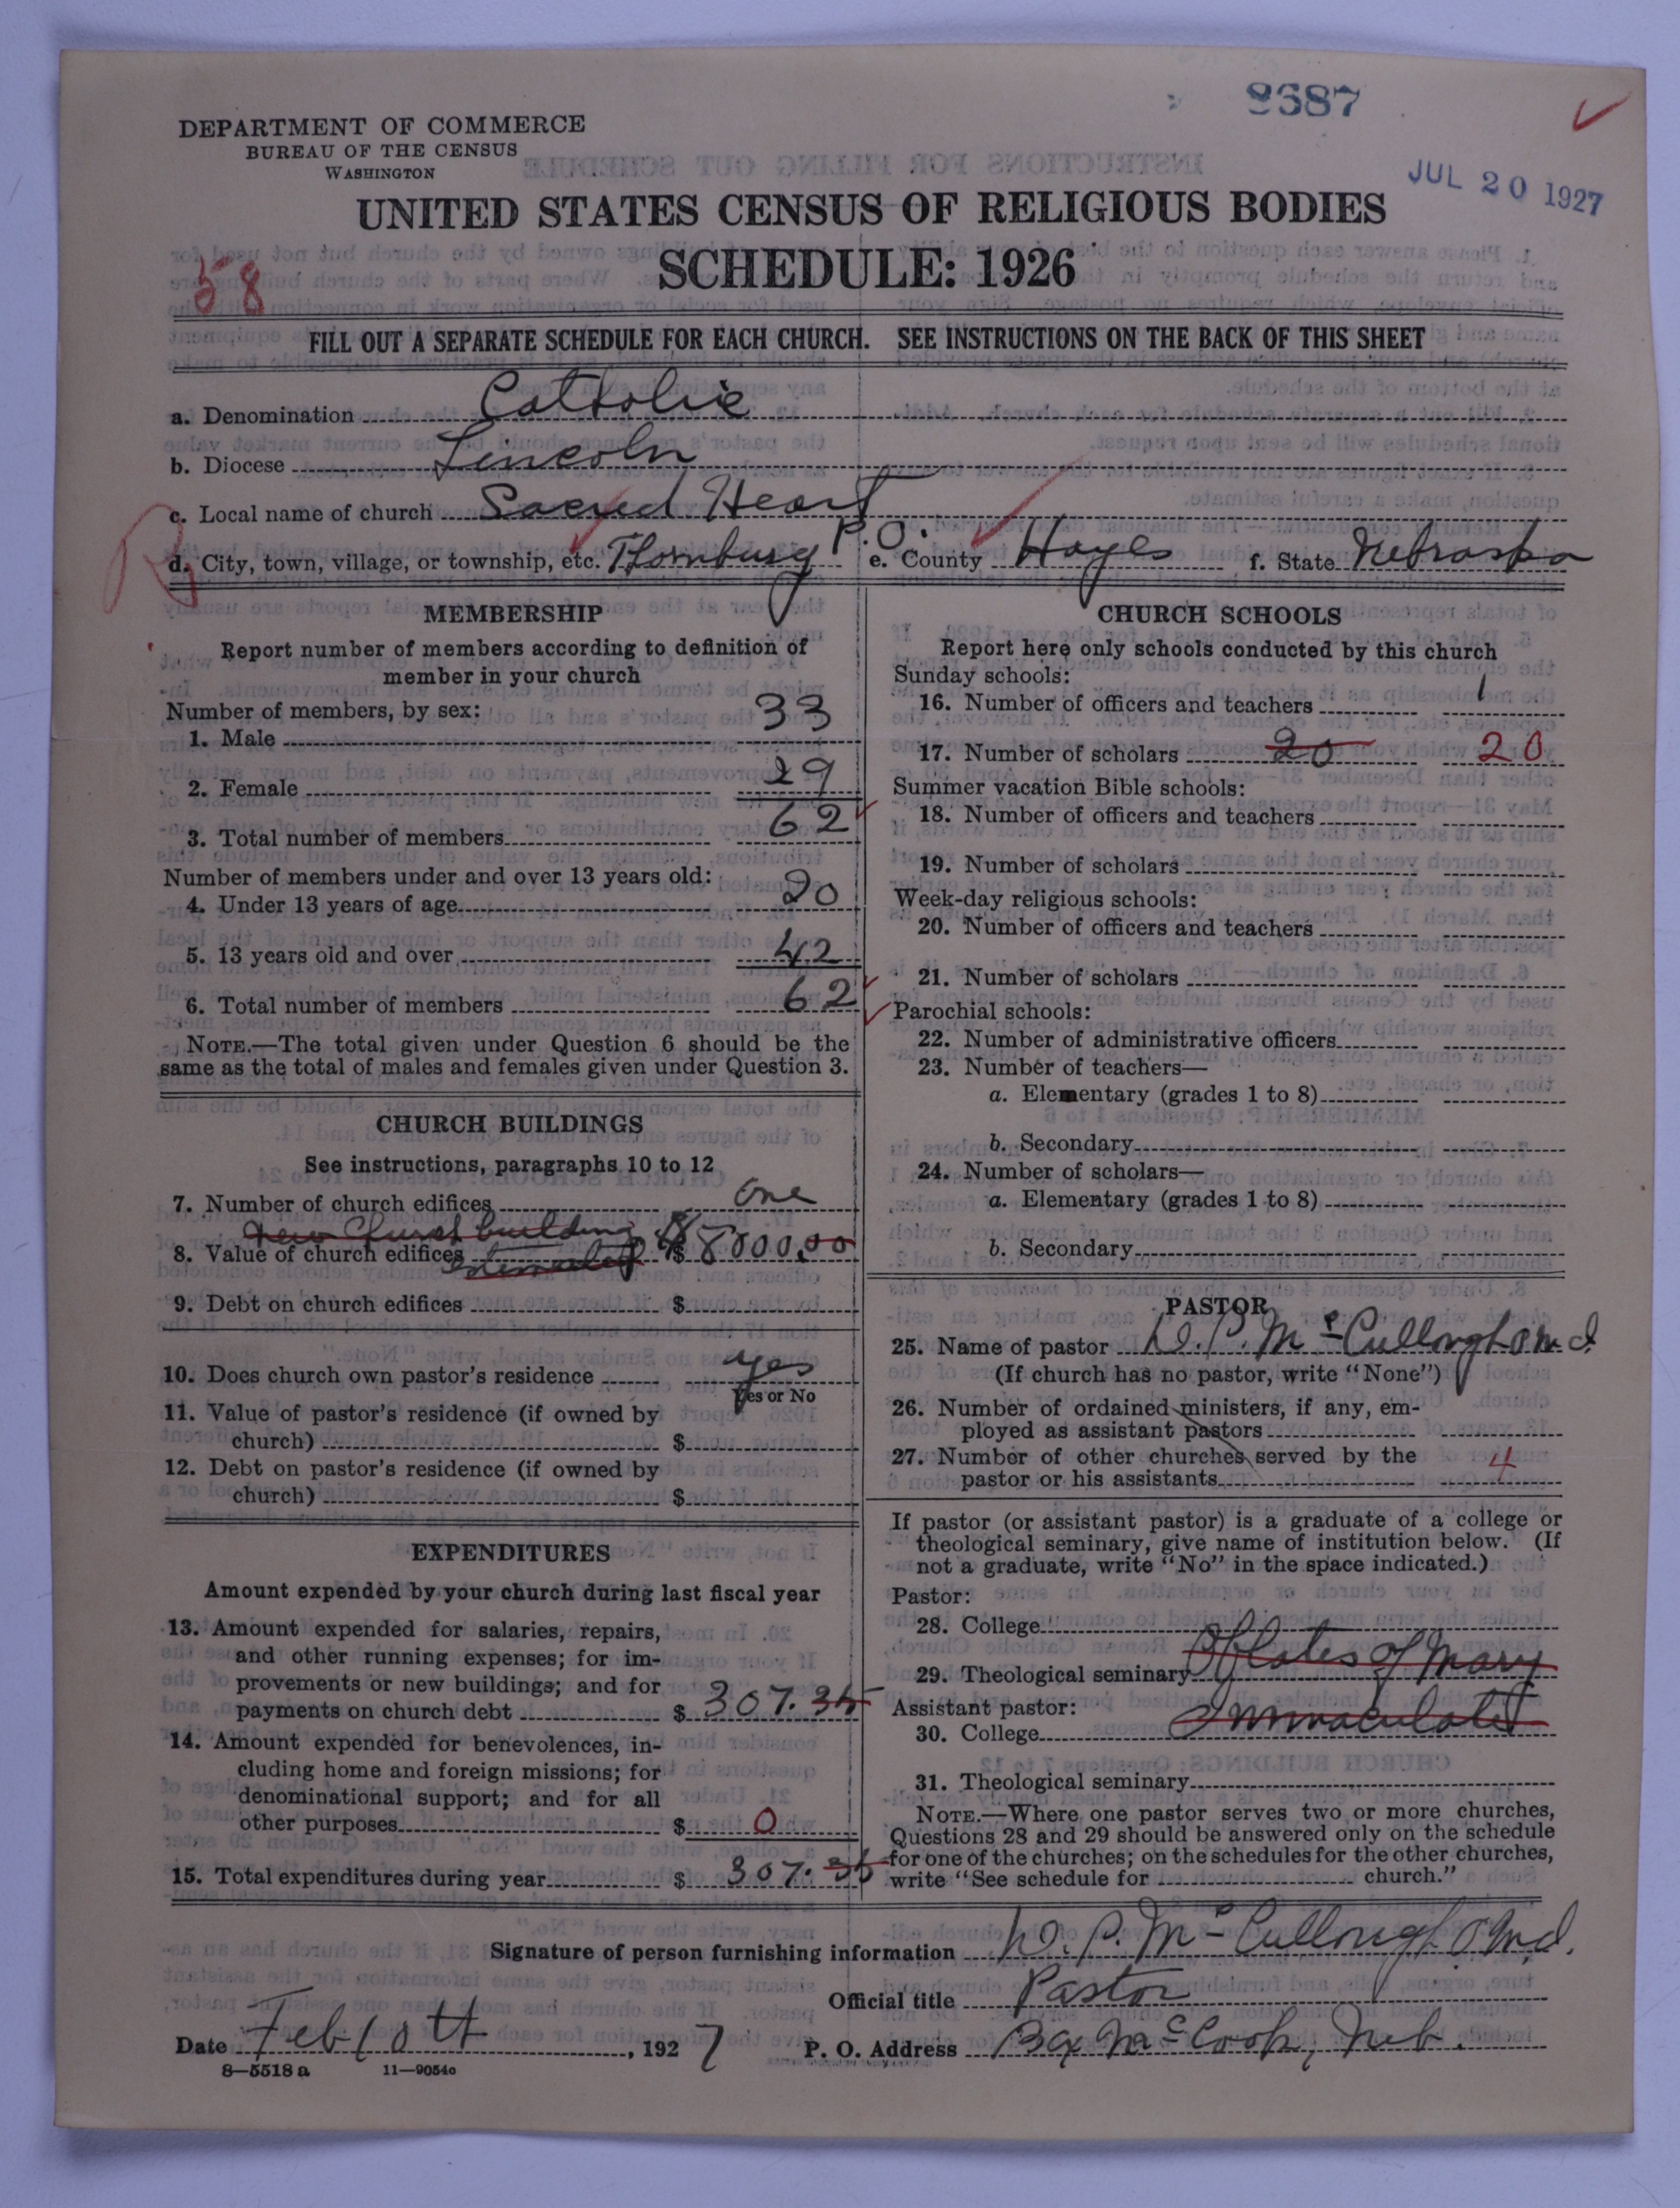 8687
DEPARTMENT OF COMMERCE
BUREAU OF THE CENSUS
WASHINGTON
JUL 20 1927
UNITED STATES CENSUS OF RELIGIOUS BODIES
SCHEDULE: 1926
58
FILL OUT A SEPARATE SCHEDULE FOR EACH CHURCH. SEE INSTRUCTIONS ON THE BACK OF THIS SHEET
a. Denomination Catholic
b. Diocese Lincoln
c. Local name of church Sacred Heart
d. City, town, village, or township, etc. Thornburg P.O. e. County Hayes f. State Nebraska
MEMBERSHIP
Report number of members according to definition of
member in your church
Number of members, by sex:
1. Male 33
2. Female 29
3. Total number of members 62
Number of members under and over 13 years old:
4. Under 13 years of age 20
5. 13 years old and over 42
6. Total number of members 62
NOTE.—The total given under Question 6 should be the
same as the total of males and females given under Question 3.
CHURCH BUILDINGS
See instructions, paragraphs 10 to 12
7. Number of church edifices one
New Church building
8. Value of church edifices $8000.00
9. Debt on church edifices $
10. Does church own pastor's residence yes
Yes or No
11. Value of pastor's residence (if owned by
church) $
12. Debt on pastor's residence (if owned by
church) $
EXPENDITURES
Amount expended by your church during last fiscal year
13. Amount expended for salaries, repairs,
and other running expenses; for im-
provements or new buildings; and for
payments on church debt $ 307.35
14. Amount expended for benevolences, in-
cluding home and foreign missions; for
denominational support; and for all
other purposes $ 0
15. Total expenditures during year $ 307.35
CHURCH SCHOOLS
Report here only schools conducted by this church
Sunday schools:
16. Number of officers and teachers 1
17. Number of scholars 20 20
Summer vacation Bible schools:
18. Number of officers and teachers
19. Number of scholars
Week-day religious schools:
20. Number of officers and teachers
21. Number of scholars
Parochial schools:
22. Number of administrative officers
23. Number of teachers—
a. Elementary (grades 1 to 8)
b. Secondary
24. Number of scholars—
a. Elementary (grades 1 to 8)
b. Secondary
PASTOR
25. Name of pastor W. P. McCullough O.M.I.
(If church has no pastor, write "None")
26. Number of ordained ministers, if any, em-
ployed as assistant pastors
27. Number of other churches served by the
pastor or his assistants 4
If pastor (or assistant pastor) is a graduate of a college or
theological seminary, give name of institution below. (If
not a graduate, write "No" in the space indicated.)
Pastor:
28. College
29. Theological seminary Oblates of Mary
Assistant pastor: Immaculate
30. College
31. Theological seminary
NOTE.—Where one pastor serves two or more churches,
Questions 28 and 29 should be answered only on the schedule
for one of the churches; on the schedules for the other churches,
write "See schedule for church."
Signature of person furnishing information W. P. McCullough O.M.I.
Official title Pastor
Date Feb 10th, 1927 P. O. Address Bx McCook, Neb.
8—5518 a 11—9054c